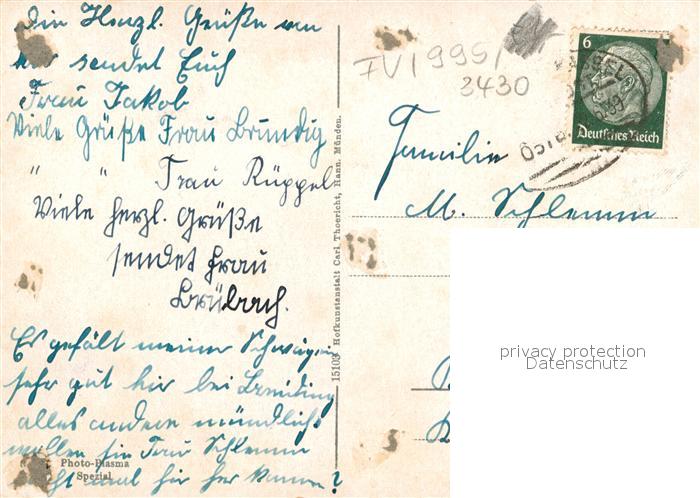 Die Herzl. Grüße von
hir sendet Euch
Frau Jakob
Viele Grüße Frau Brundig
" " Frau Rüppel
Viele herzl. Grüße
sendet Frau
Brübach.
Es gefält meiner Schwägerin
sehr gut hir bei
alles andere mündlich
wollen Sie Frau Schlemm
nicht mal für her kommen?
Photo-Plasma
Spezial
15103 Hofkunstanstalt Carl Thoericht, Hann. Münden.
FV1999/
3430
6
Deutsches Reich
KASSEL
Familie
M. Schlemm
privacy protection
Datenschutz